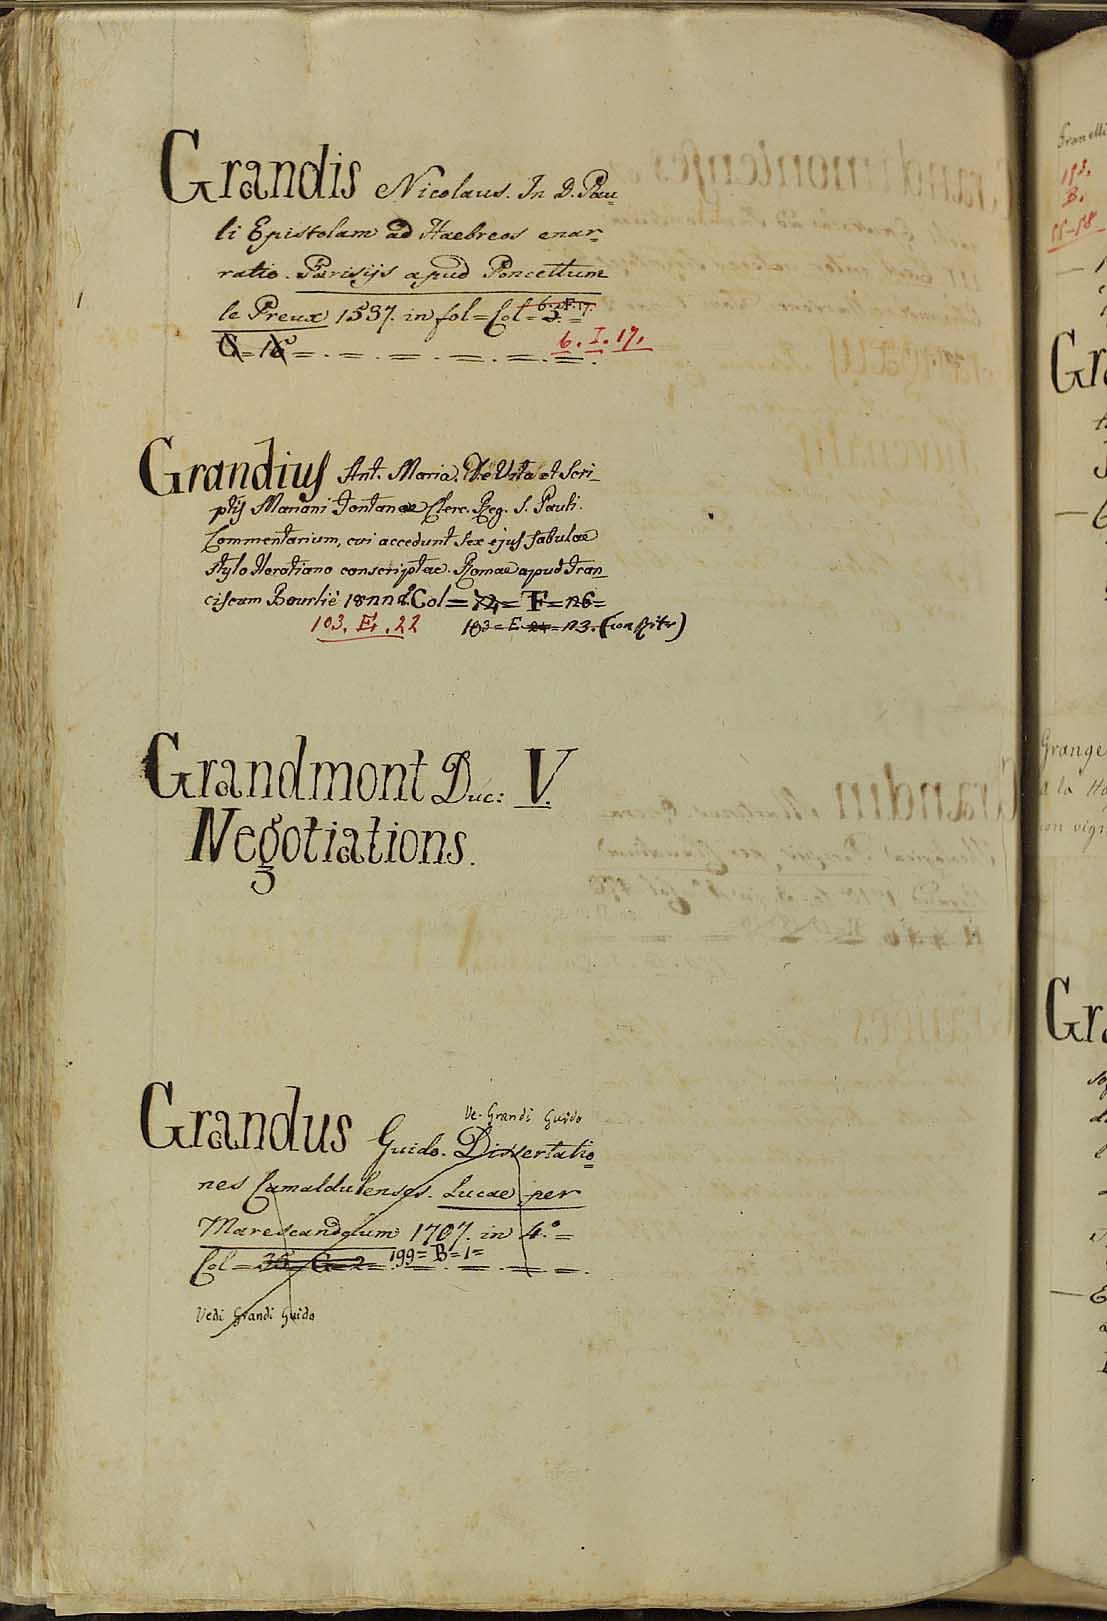 Grandis Nicolaus. In D. Pau=
li Epistolam ad Haebreos enar=
ratio. Parisijs apud Poncettum
le Preux 1537. in fol = Col = 5. = 6. F. 17.
G = 16 =
6. I. 17.
Grandius Ant. Maria. De Vita et Scri_
ptis Mariani Fontanae Cler. Reg. S. Pauli.
Commentarium, cui accedunt sex ejus fabulae
stylo Horatiano conscriptae. Romae apud Fran_
ciscum Bourliè Col = 74 = F = 26 =
103. E. 22
103 = E = 23. (con Ritr)
Grandmont Duc: V.
Negotiations.
Ve. Grandi Guido
Grandus Guido. Dissertatio=
nes Camaldulenses. Lucae per
Marescandolum 1707. in 4.° =
Col = 35 = G = 2 = 199 = B = 1 =
Vedi Grandi Guido
Granelli
193.
B.
Gra
Grange
a la
Gra